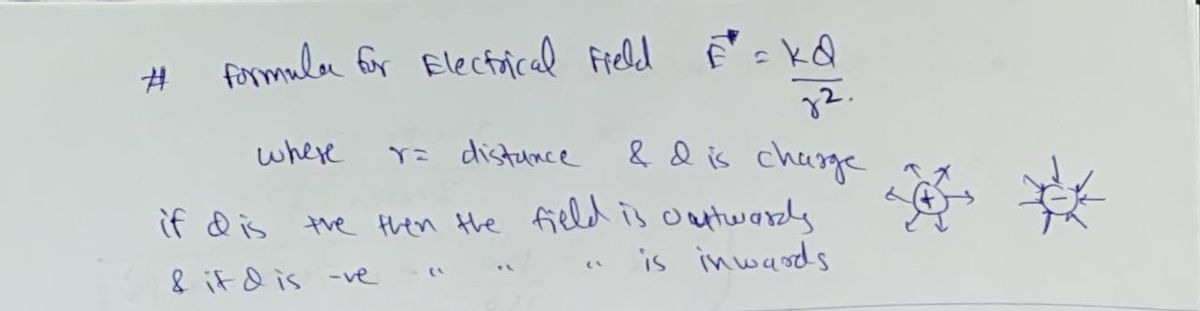 # Formula for Electrical Field E⃗ = kQ/r².
where r= distance & Q is charge
if Q is +ve then the field is outwards
& if Q is -ve " " " is inwards
+ -